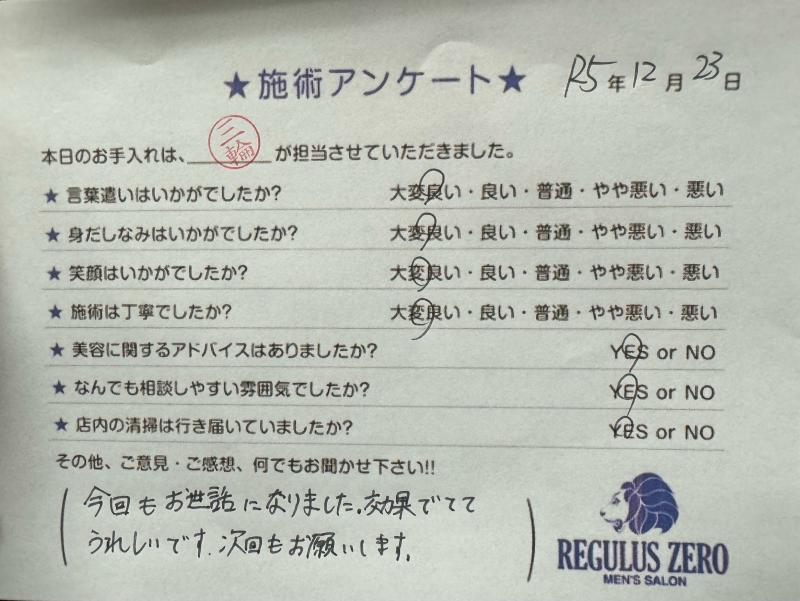 ★施術アンケート★ R5年12月23日
本日のお手入れは、三輪が担当させていただきました。
★ 言葉遣いはいかがでしたか? 大変良い・良い・普通・やや悪い・悪い
★ 身だしなみはいかがでしたか? 大変良い・良い・普通・やや悪い・悪い
★ 笑顔はいかがでしたか? 大変良い・良い・普通・やや悪い・悪い
★ 施術は丁寧でしたか? 大変良い・良い・普通・やや悪い・悪い
★ 美容に関するアドバイスはありましたか? YES or NO
★ なんでも相談しやすい雰囲気でしたか? YES or NO
★ 店内の清掃は行き届いていましたか? YES or NO
その他、ご意見・ご感想、何でもお聞かせ下さい!!
今回もお世話になりました。効果でてて
うれしいです。次回もお願いします。
REGULUS ZERO
MEN'S SALON